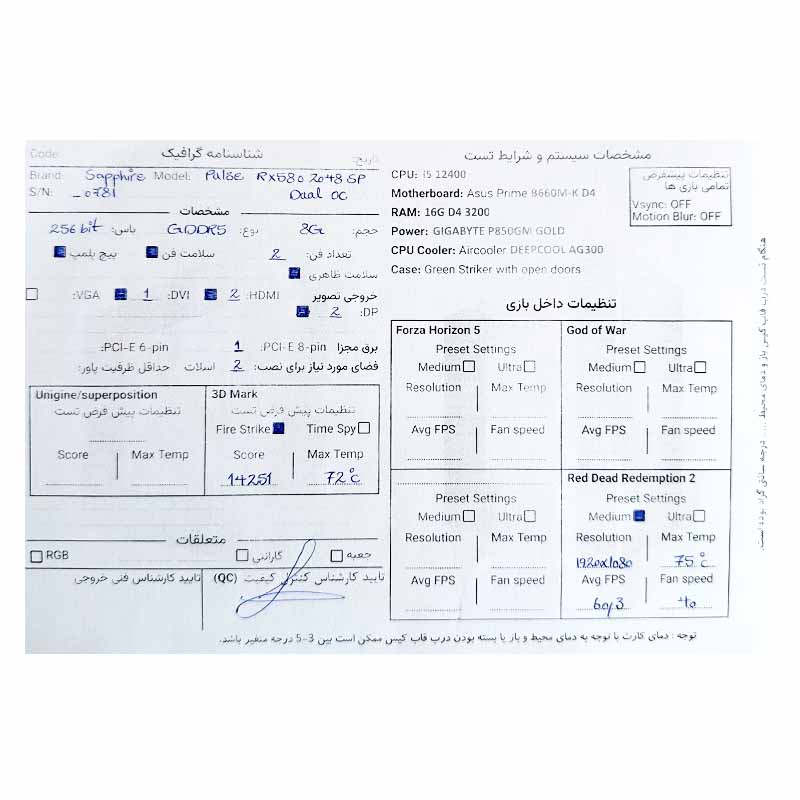 شناسنامه گرافیک
Code:
تاریخ:
Brand: Sapphire Model: Pulse RX580 2048 SP
S/N: _0781 Dual OC
مشخصات
حجم: 8G نوع: GDDR5 باس: 256 bit
تعداد فن: 2 سلامت فن پیچ پلمپ
سلامت ظاهری
خروجی تصویر HDMI: 2 DVI: 1 VGA:
DP: 2
برق مجزا PCI-E 8-pin: 1 PCI-E 6-pin:
فضای مورد نیاز برای نصب: 2 اسلات حداقل ظرفیت پاور:
Unigine/superposition
تنظیمات پیش فرض تست
Score Max Temp
3D Mark
تنظیمات پیش فرض تست
Fire Strike Time Spy
Score Max Temp
14251 72°c
متعلقات
جعبه گارانتی RGB
تایید کارشناس کنترل کیفیت (QC) تایید کارشناس فنی خروجی
مشخصات سیستم و شرایط تست
CPU: i5 12400
Motherboard: Asus Prime B660M-K D4
RAM: 16G D4 3200
Power: GIGABYTE P850GM GOLD
CPU Cooler: Aircooler DEEPCOOL AG300
Case: Green Striker with open doors
تنظیمات پیشفرض
تمامی بازی ها
Vsync: OFF
Motion Blur: OFF
تنظیمات داخل بازی
Forza Horizon 5
Preset Settings
Medium Ultra
Resolution Max Temp
Avg FPS Fan speed
God of War
Preset Settings
Medium Ultra
Resolution Max Temp
Avg FPS Fan speed
Preset Settings
Medium Ultra
Resolution Max Temp
Avg FPS Fan speed
Red Dead Redemption 2
Preset Settings
Medium Ultra
Resolution Max Temp
1920x1080 75°c
Avg FPS Fan speed
60/3 40
توجه : دمای کارت با توجه به دمای محیط و باز یا بسته بودن درب قاب کیس ممکن است بین 3-5 درجه متغیر باشد.
هنگام تست درب قاب کیس باز و دمای محیط .... درجه سانتی گراد بوده است.